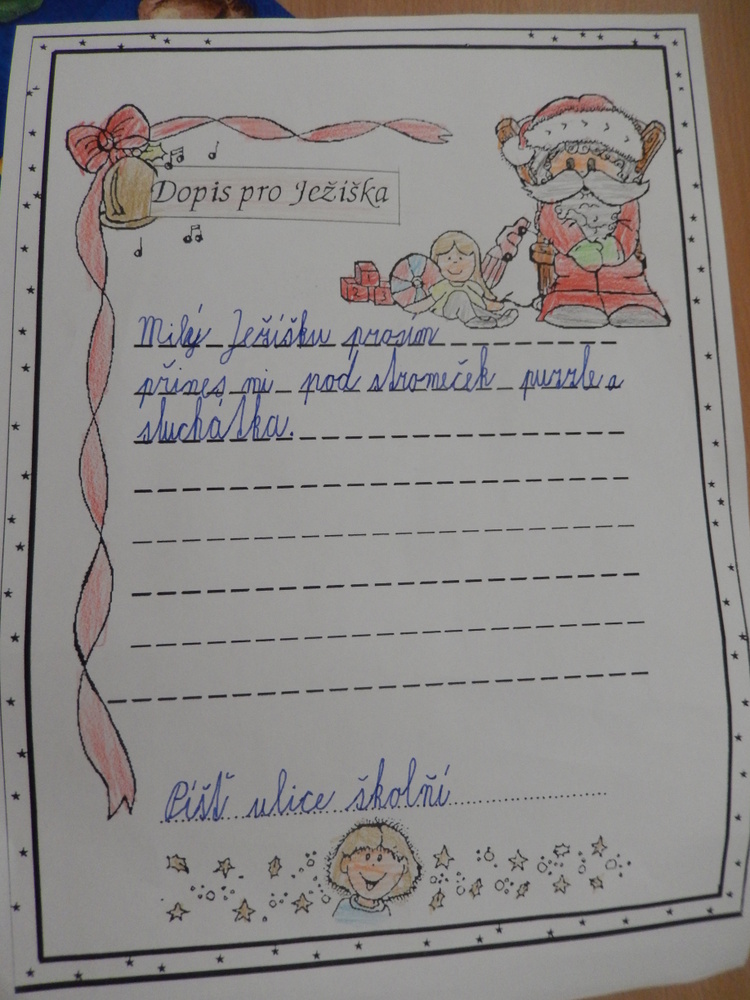 Dopis pro Ježíška
1
2 3
Milý Ježíšku prosím
přines mi pod stromeček puzzle a
sluchátka.
Píšť ulice školňí